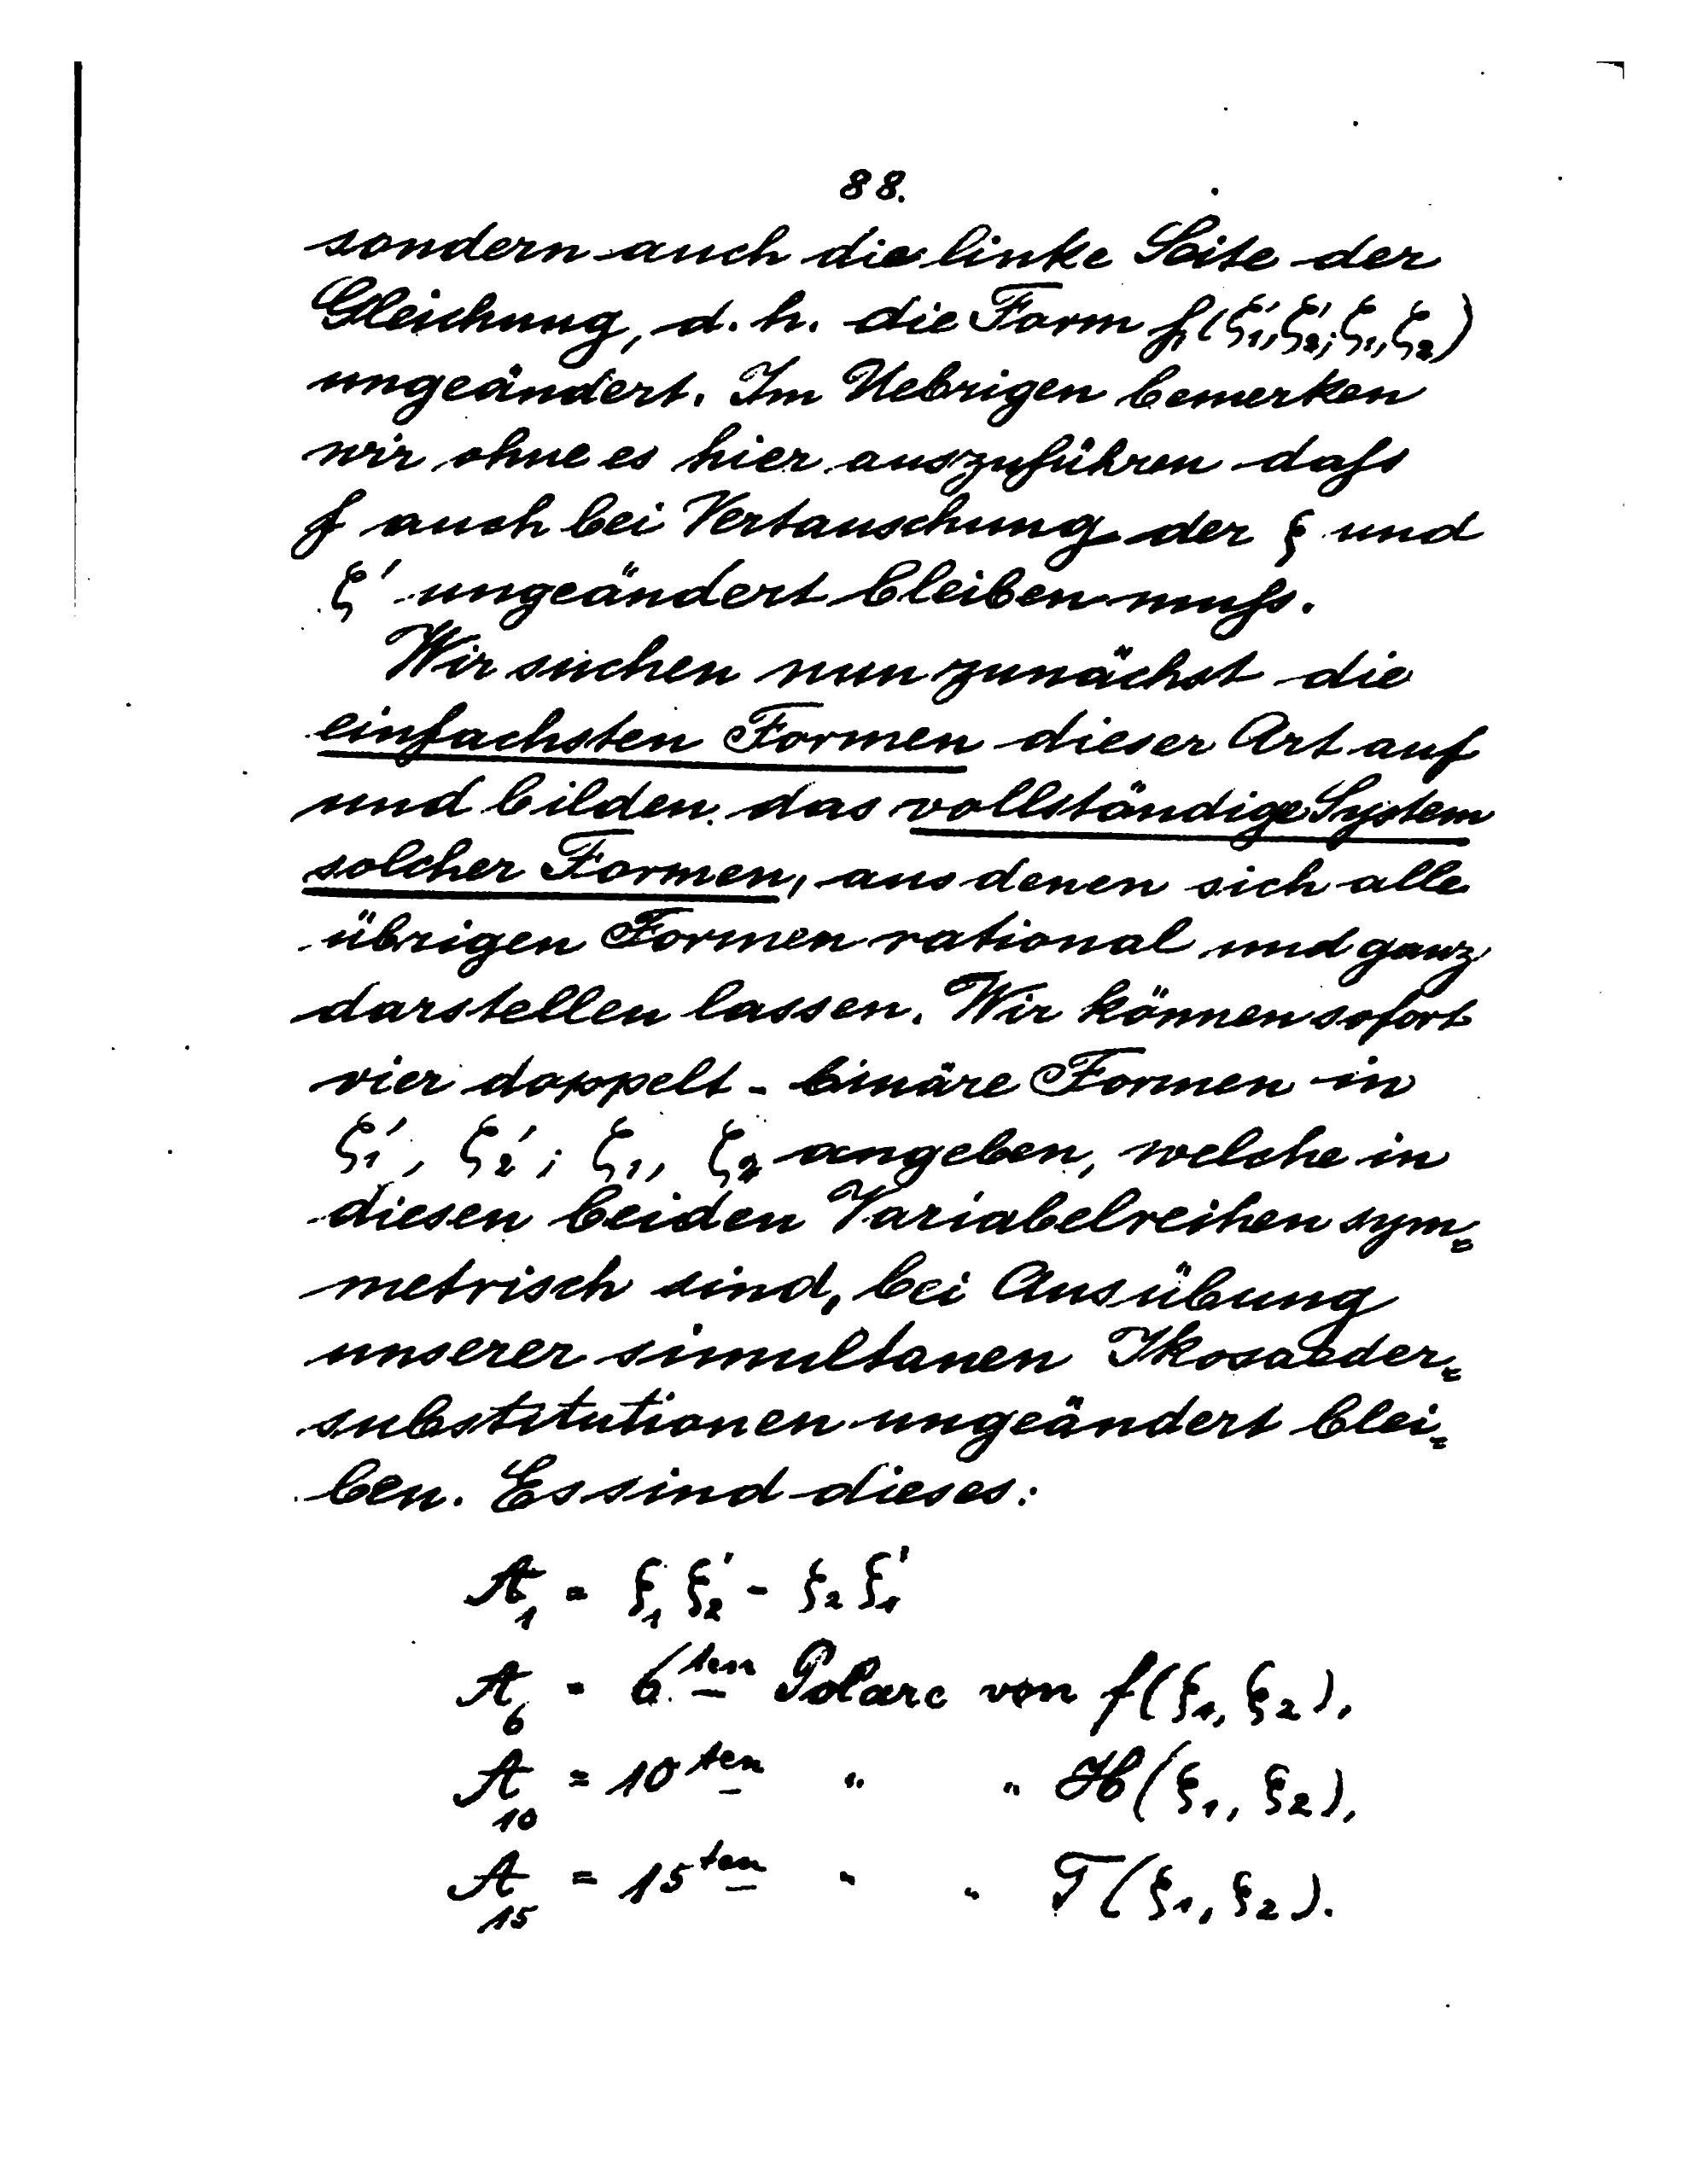 88.
sondern auch die linke Seite der
Gleichung, d. h. die Form f(ξ₁', ξ₂'; ξ₁, ξ₂)
ungeändert. Im Uebrigen bemerken
wir ohne es hier auszuführen dafs
f auch bei Vertauschung der ξ und
ξ' ungeändert bleiben mufs.
Wir suchen nun zunächst die
einfachsten Formen dieser Art auf
und bilden das vollständige System
solcher Formen, aus denen sich alle
übrigen Formen rational und ganz
darstellen lassen. Wir können sofort
vier doppelt-binäre Formen in
ξ₁', ξ₂'; ξ₁, ξ₂ angeben, welche in
diesen beiden Variabelreihen sym=
metrisch sind, bei Ausübung
unserer simultanen Ikosaeder=
substitutionen ungeändert blei=
ben. Es sind dieses:
A₁ = ξ₁ ξ₂' - ξ₂ ξ₁'
A₆ = 6ten Polare von f(ξ₁, ξ₂),
A₁₀ = 10ten " " H(ξ₁, ξ₂),
A₁₅ = 15ten " " T(ξ₁, ξ₂).